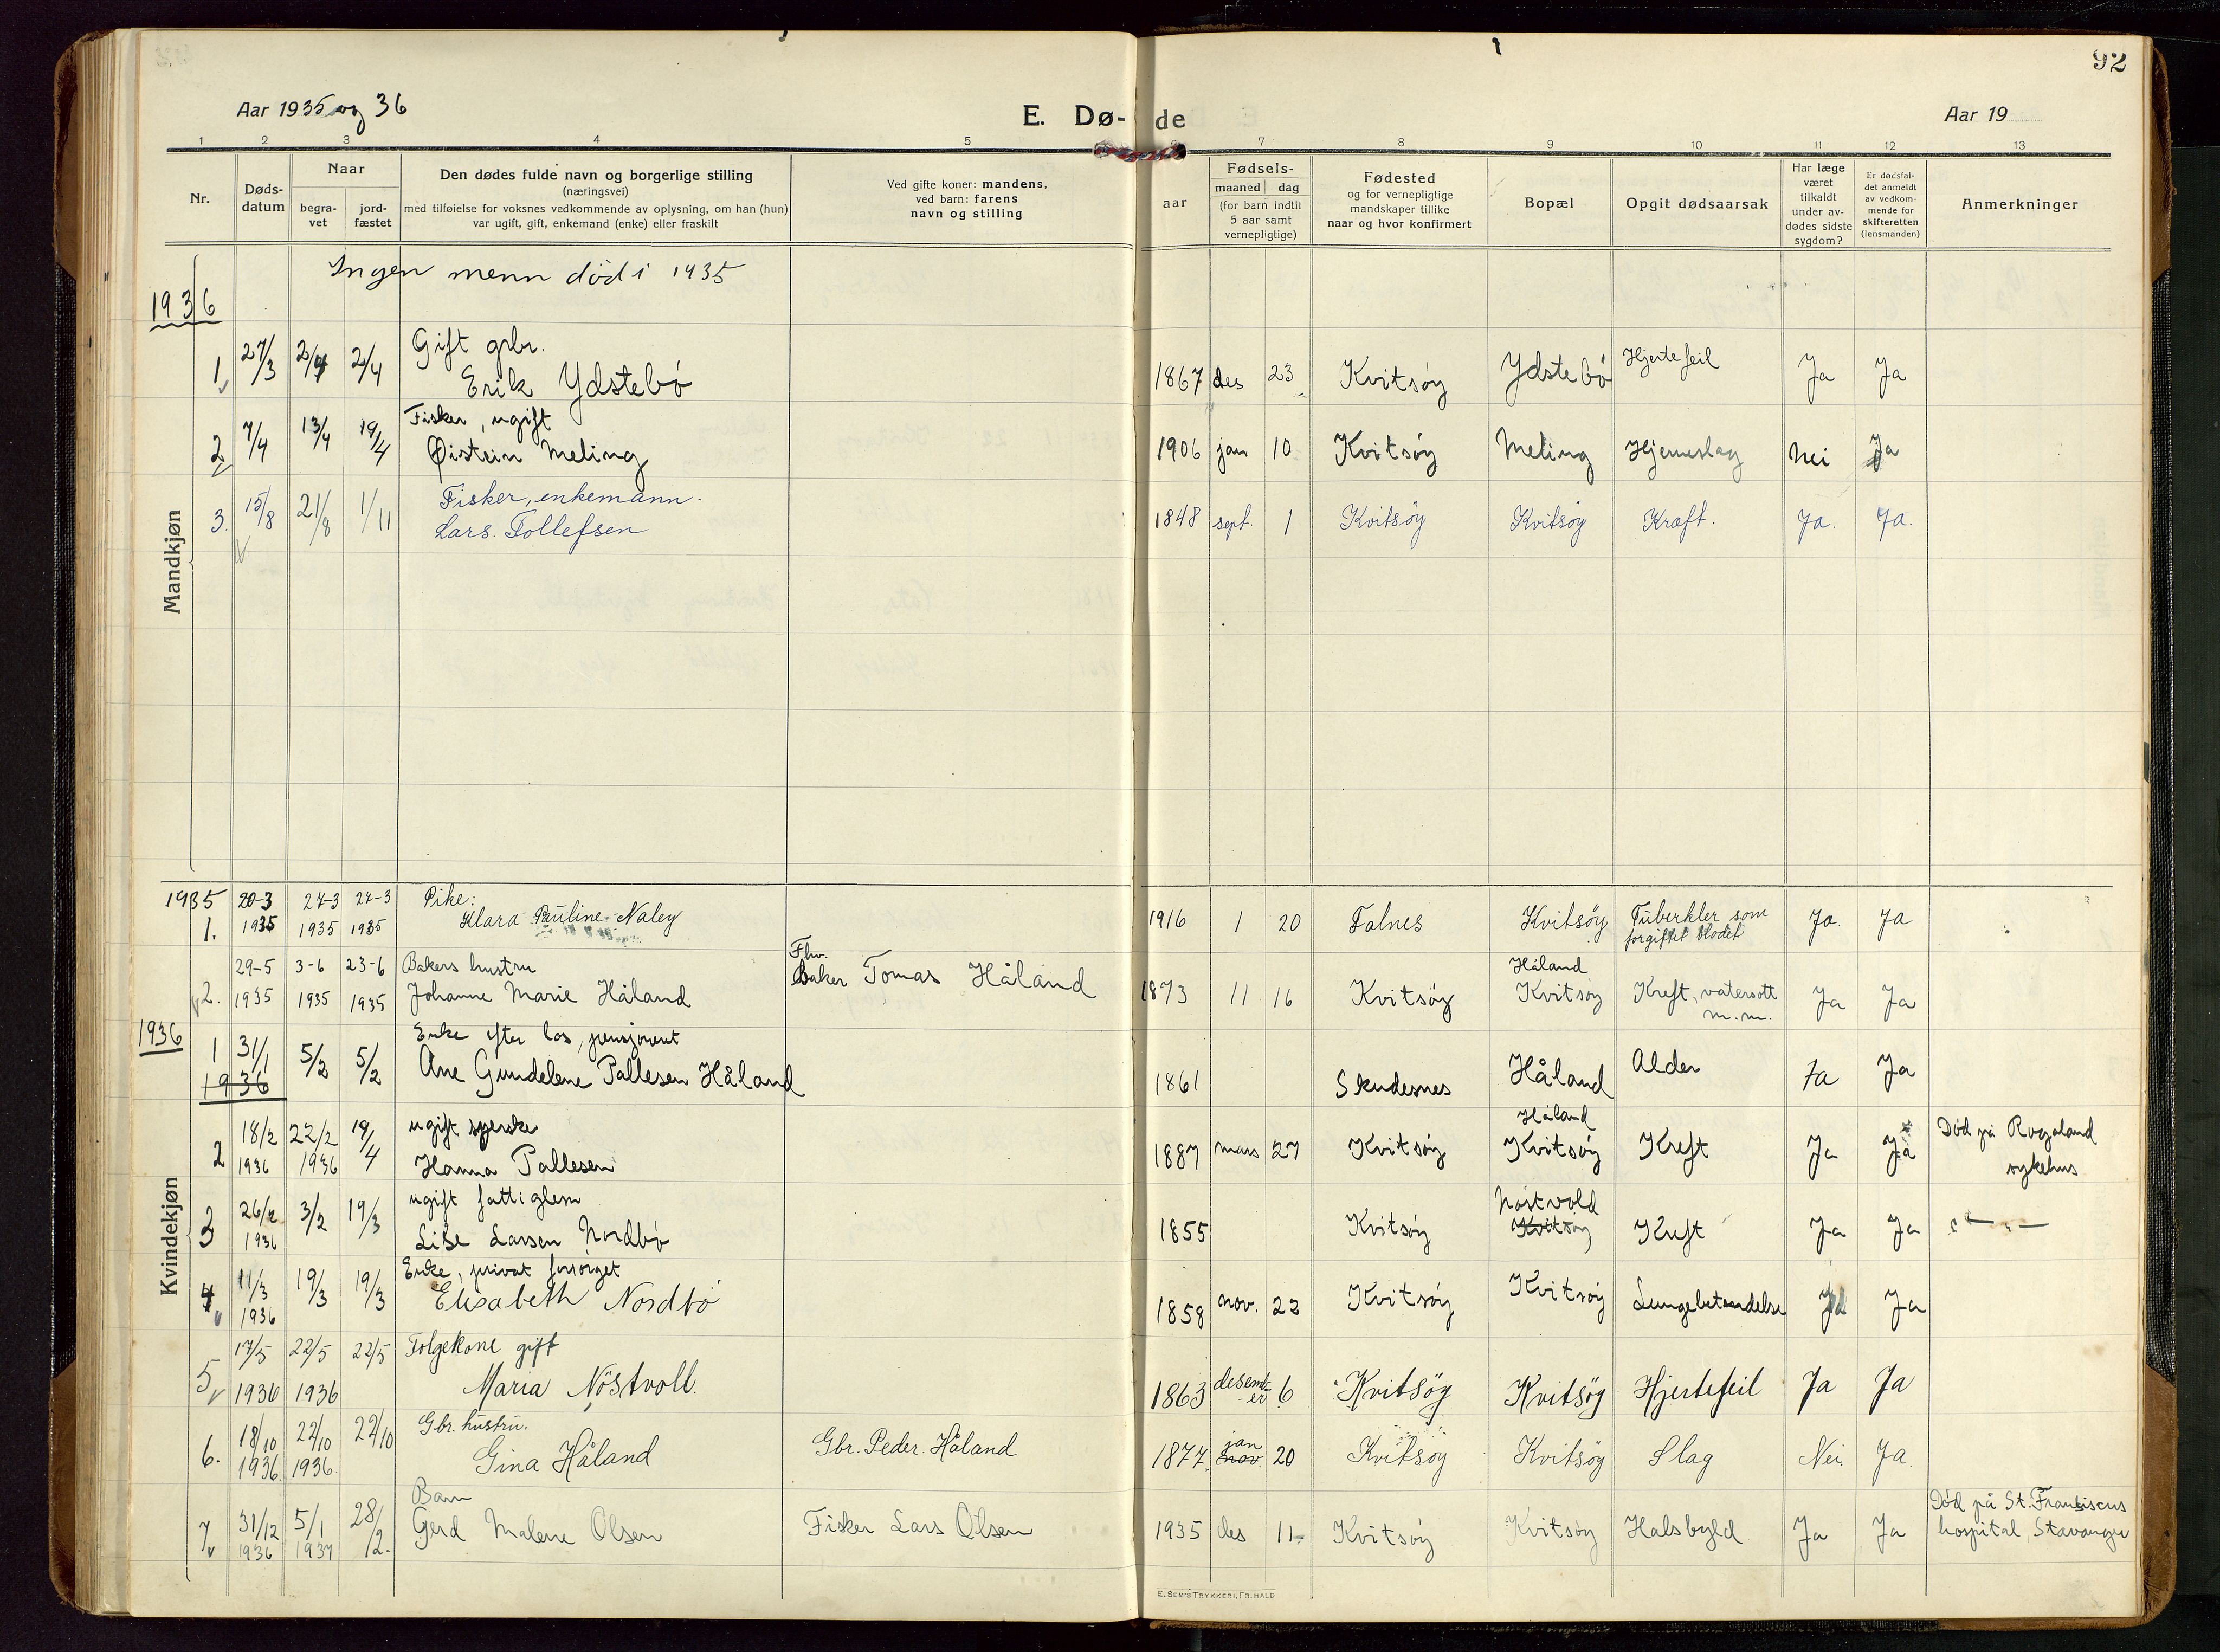 92
Aar 1935 og 36
E. Dø-
de
Aar 19
1 2 3 4 5 7 8 9 10 11 12 13
Nr.
Døds-
datum
Naar
begra-
vet
jord-
fæstet
Den dødes fulde navn og borgerlige stilling
(næringsvei)
med tilføielse for voksnes vedkommende av oplysning, om han (hun)
var ugift, gift, enkemand (enke) eller fraskilt
Ved gifte koner: mandens,
ved barn: farens
navn og stilling
Fødsels-
aar
maaned
dag
(for barn indtil
5 aar samt
vernepligtige)
Fødested
og for vernepligtige
mandskaper tillike
naar og hvor konfirmert
Bopæl
Opgit dødsaarsak
Har læge
været
tilkaldt
under av-
dødes sidste
sygdom?
Er dødsfal-
det anmeldt
av vedkom-
mende for
skifteretten
(lensmanden)
Anmerkninger
Mandkjøn
Ingen menn död i 1935
1936
Gift gbr.
1 27/3 2/4 2/4 Erik Ydstebö 1867 des 23 Kvitsöy Ydstebö Hjertefeil Ja Ja
Fisker, ugift
2 7/4 13/4 19/4 Øistein Meling 1906 jan 10 Kvitsöy Meling Hjerneslag Nei Ja
Fisker, enkemann.
3. 15/8 21/8 1/11 Lars Tollefsen 1848 sept. 1 Kvitsöy Kvitsöy Kræft. Ja. Ja.
Kvindekjøn
1935 20-3 27-3 27-3 Pike:
1. 1935 1935 1935 Klara Pauline Naley 1916 1 20 Falnes Kvitsöy Tuberkler som Ja. Ja
forgiftet blodet
29-5 3-6 23-6 Bakers hustru Fhv. Håland
2. 1935 1935 1935 Johanne Marie Håland Baker Tomas Håland 1873 11 16 Kvitsöy Kvitsöy Kreft, vatersott Ja Ja
m.m.
1936
Enke efter los, pensjonert
1 31/1 5/2 5/2 Ane Gundelene Pallesen Håland 1861 Skudesnes Håland Alder Ja Ja
1936
18/2 22/2 19/4 ugift syerske Håland Död på Rogaland
2 1936 1936 Hanna Pallesen 1887 mars 27 Kvitsöy Kvitsöy Kreft Ja Ja sykehus
26/2 3/2 19/3 ugift fattiglem Nöstvold
3 1936 Lise Larsen Nordbö 1855 Kvitsöy Kvitsöy Kreft Ja Ja — " —
Enke, privat forsörget
4 11/3 19/3 19/3 Elisabeth Nordbö 1858 nov. 23 Kvitsöy Kvitsöy Lungebetendelse Ja Ja
1936
17/5 22/5 22/5 Folgekone gift
5 1936 1936 Maria Nöstvoll. 1863 desemb-er 6 Kvitsöy Kvitsöy Hjertefeil Ja Ja
18/10 22/10 22/10 Gbr. hustru. jan
6. 1936. 1936. Gina Håland Gbr. Peder Håland 1877. nov. 20 Kvitsöy Kvitsöy Slag Nei. Ja.
Barn Död på St. Fransiscus
7 31/12 5/1 28/2. Gerd Malene Olsen Fisker Lars Olsen 1935 des 11 Kvitsöy Kvitsöy Halsbyld Ja Ja hospital, Stavanger
1936 1937
E. SEM'S TRYKKERI, FR.HALD